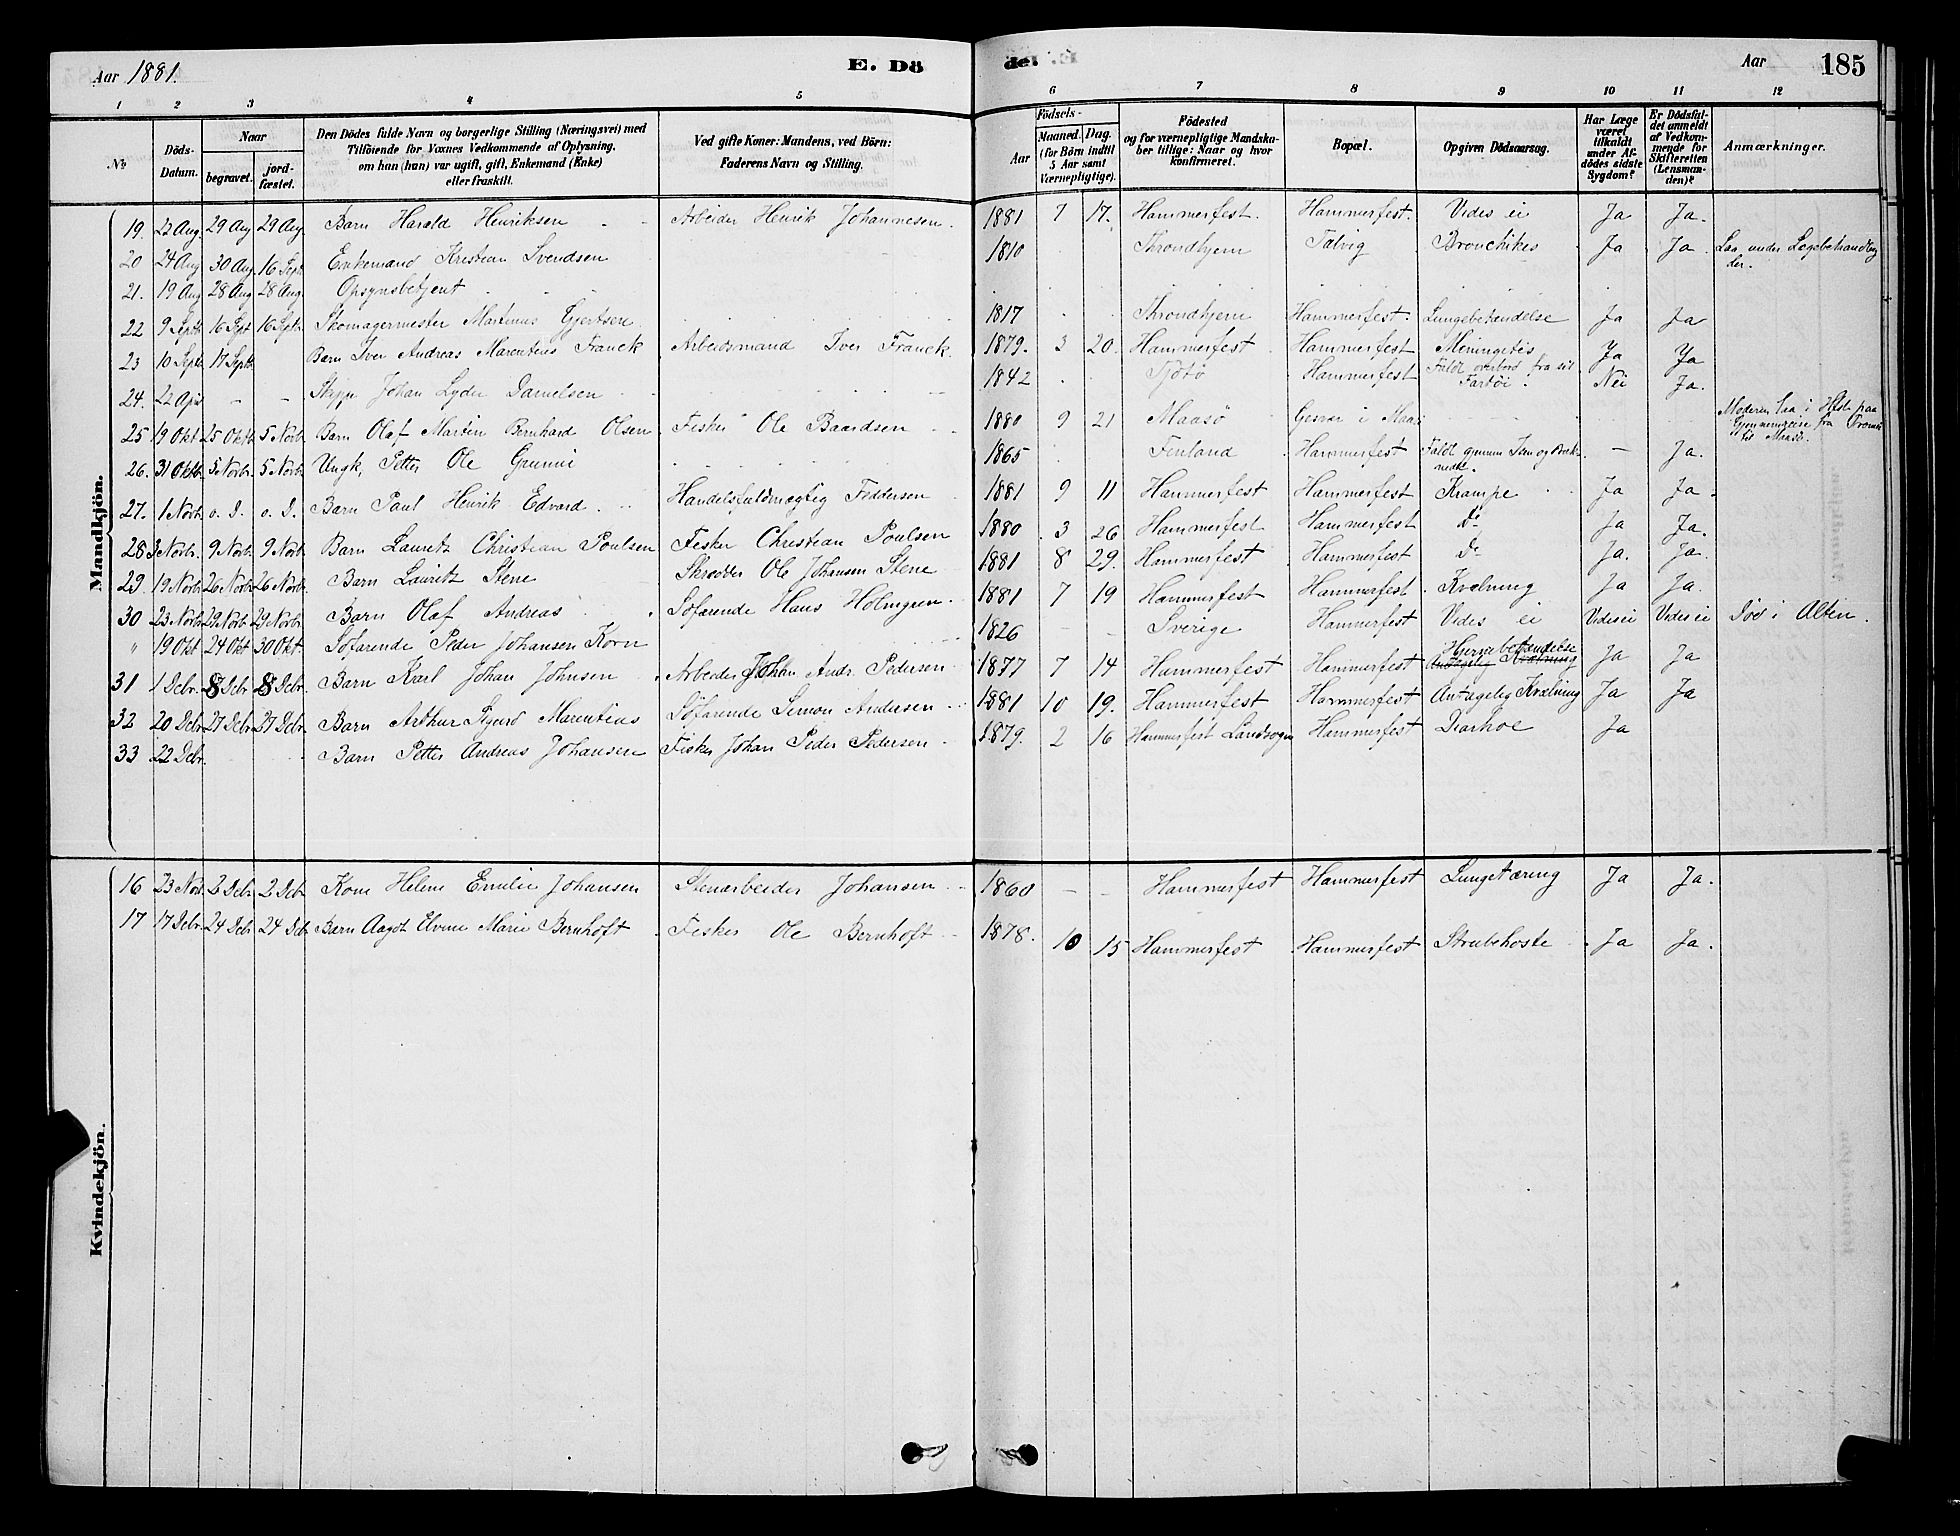 Aar 1881.
E. Dö
de.
Aar
185
1 2 3 4 5 6 7 8 9 10 11 12
No
Döds-Datum.
Naar
begravet.
jordfæstet.
Den Dödes fulde Navn og borgerlige Stilling (Næringsvei) med Tilföiende for Voxnes Vedkommende af Oplysning, om han (hun) var ugift, gift, Enkemand (Enke) eller fraskilt.
Ved gifte Koner: Mandens, ved Börn: Faderens Navn og Stilling.
Födsels-
Aar
Maaned. Dag.
(for Börn indtil 5 Aar samt Værnepligtige).
Födested og for værnepligtige Mandskaber tillige: Naar og hvor konfirmeret.
Bopæl.
Opgiven Dödsaarsag.
Har Læge været tilkaldt under Afdödes sidste Sygdom?
Er Dödsfaldet anmeldt af Vedkommende for Skifteretten (Lensmanden)?
Anmærkninger.
Mandkjön.
19. 23 Aug. 29 Aug 29 Aug. Barn Harald Henriksen Arbeider Henrik Johannesen. 1881 7 17. Hammerfest. Hammerfest. Vides ei Ja Ja.
20 24 Aug 30 Aug. 16 Sept. Enkemand Kristian Svendsen 1810 Throndhjem Talvig Bronchites Ja Ja. Laa under Lægebehandling der.
21. 19 Aug 28 Aug 28 Aug. Opsynsbetjent
22 9 Septb 16 Sept 16 Septb. Skomagermester Martinus Gjertsen 1817 Throndhjem Hammerfest. Lungebetændelse Ja Ja
23 10 Septb. 17 Septb. Barn Iver Andreas Marentius Franck Arbeidsmand Iver Franck. 1879. 3 20. Hammerfest Hammerfest Meningetis Ja Ja
24. 22 Apr. – – Skipp. Johan Lyder Danielsen 1842 Tjötö Hammerfest Faldt overbord fra sit Fartöi. Nei Ja.
25 19 Okt 25 Oktb 5 Novb. Barn Olaf Martin Bernhard Olsen Fisker Ole Baardsen 1880 9 21 Maasö Gesvær i Maas Moderen laa i Hfst. paa Gjennemreise fra Tromsö til Maasö.
26. 31 Oktb. 5 Novbr. 5 Novbr. Ungk, Petter Ole 1865 Finland Hammerfest Faldt gjennem Isen og druknede. – Ja.
27. 1 Novb. o. D. o. D. Barn Paul Henrik Edvard. Handelsfuldmægtig Feddersen 1881 9 11 Hammerfest Hammerfest Krampe Ja Ja.
28 3 Novbr. 9 Novbr. 9 Novbr. Barn Lauretz Christian Poulsen Fisker Christian Poulsen 1880 3 26 Hammerfest Hammerfest Do Ja Ja.
29 19 Novbr. 26 Novbr. 26 Novbr. Barn Lauretz Stene Skrædder Ole Johansen Stene 1881 8 29. Hammerfest Hammerfest Do Ja. Ja.
30 23 Novbr. 29 Novbr. 29 Novbr. Barn Olaf Andreas Söfarende Hans Holmgren. 1881 7 19 Hammerfest Hammerfest Kvælning Ja Ja.
" 19 Okt 24 Okt 30 Okt. Söfarende Peder Johansen Korn 1826 – – Sverige Hammerfest Vides ei Vides ei Vides ei Död i Alten.
31 1 Debr. 8 Debr 8 Debr. Barn Karl Johan Johnsen Arbeider Johan Andr. Pedersen 1877 7 14 Hammerfest Hammerfest Hjernebetændelse Antagelig Kvælning Ja Ja
32 20 Debr. 27 Debr 27 Debr. Barn Arthur Sigurd Marentius Söfarende Simon Andersen 1881 10 19. Hammerfest Hammerfest Antagelig Kvælning Ja Ja
33 22 Debr. Barn Petter Andreas Johansen Fisker Johan Peder Pedersen 1879. 2 16 Hammerfest Landsogn Hammerfest Diarhoe Ja
Kvindekjön.
16 23 Nov. 2 Debr 2 Debr Kone Helene Emilie Johansen Stenarbeider Johansen 1860 – – Hammerfest Hammerfest Lungetæring Ja Ja.
17 17 Debr. 24 Debr 24 Debr. Barn Aagot Elvine Marie Bernhoft Fisker Ole Bernhoft 1878. 10 15 Hammerfest Hammerfest Strubehoste Ja Ja.